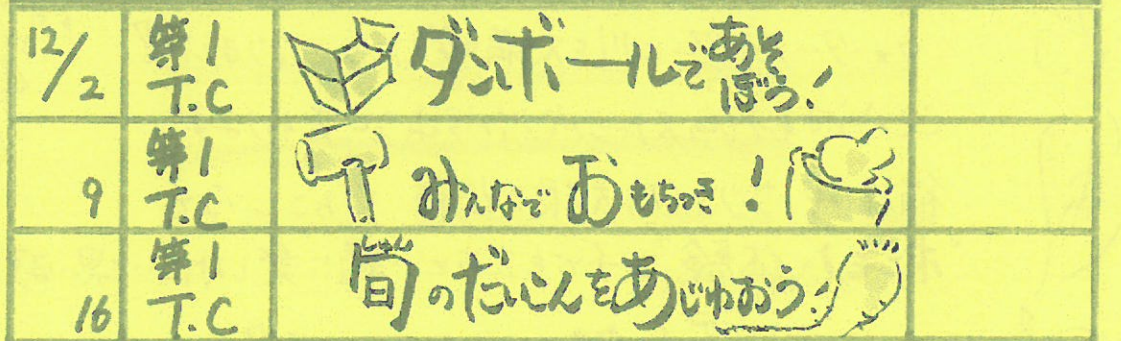 12/2 第1 T.C ダンボールであそぼう!
9 第1 T.C みんなでおもちつき!
16 第1 T.C 旬(しゅん)のだいこんをあじわおう!